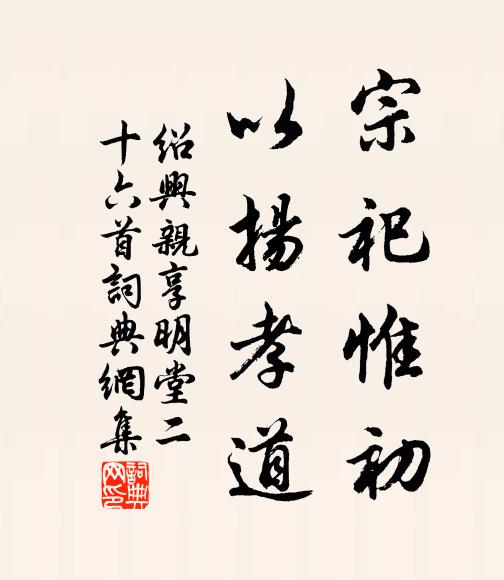 宗祀惟初
以揚孝道
紹興親享明堂二
十六首詞典網集
詞典網印